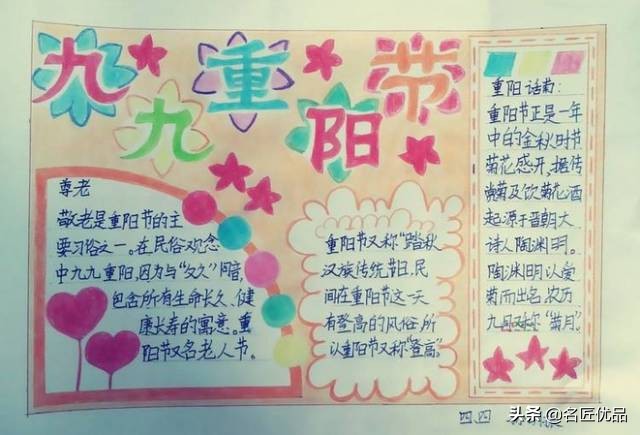 九九重阳节
尊老
敬老是重阳节的主
要习俗之一。在民俗观念
中九九重阳,因为与“久久”同音,
包含所有生命长久、健
康长寿的寓意。重
阳节又名老人节。
重阳节又称“踏秋”
汉族传统节日,民
间在重阳节这一天
有登高的风俗,所
以重阳节又称“登高”。
重阳话菊:
重阳节正是一年
中的金秋时节
菊花盛开,据传
赏菊及饮菊花酒
起源于晋朝大
诗人陶渊明。
陶渊明以爱
菊而出名,农历
九月又称“菊月”。
四、四
头条@名匠优品